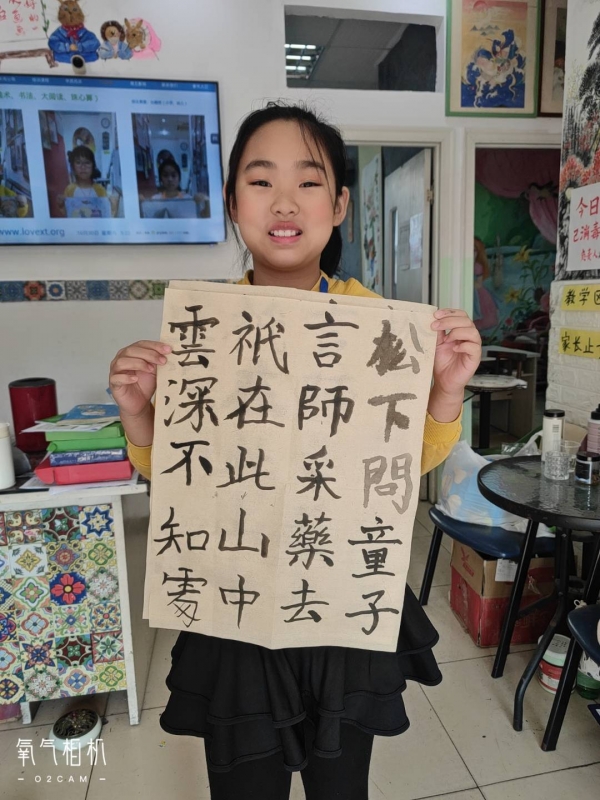 松下問童子
言師采藥去
祇在此山中
雲深不知處
www.lovext.org
今日
已消毒
教学区
家长止
氧气相机
- O2CAM -